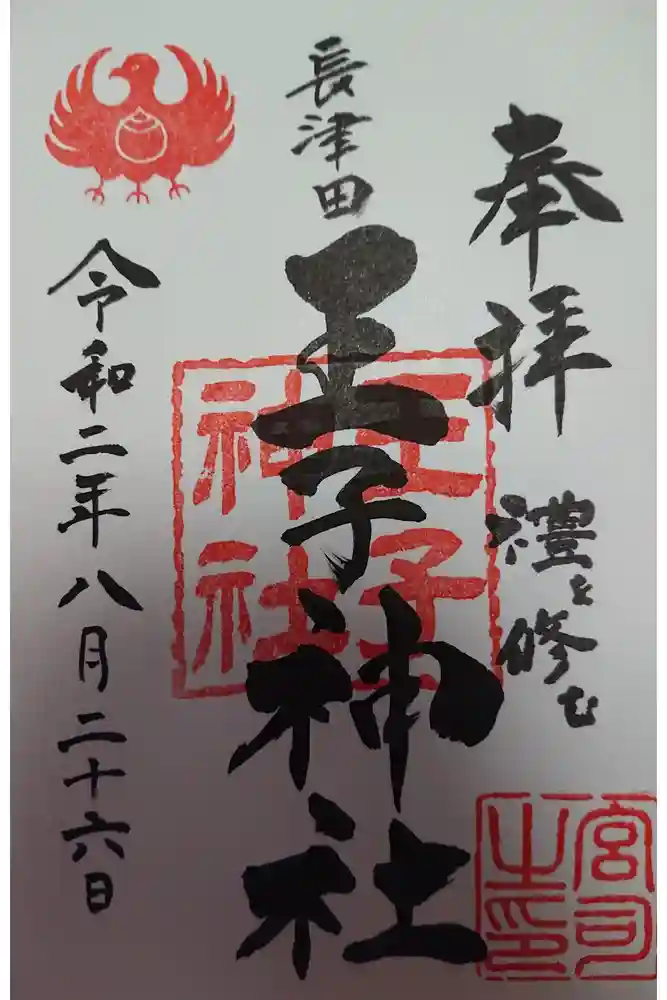 奉拝
澧を修む
長津田
王子神社
王子神社
宮司之印
令和二年八月二十六日